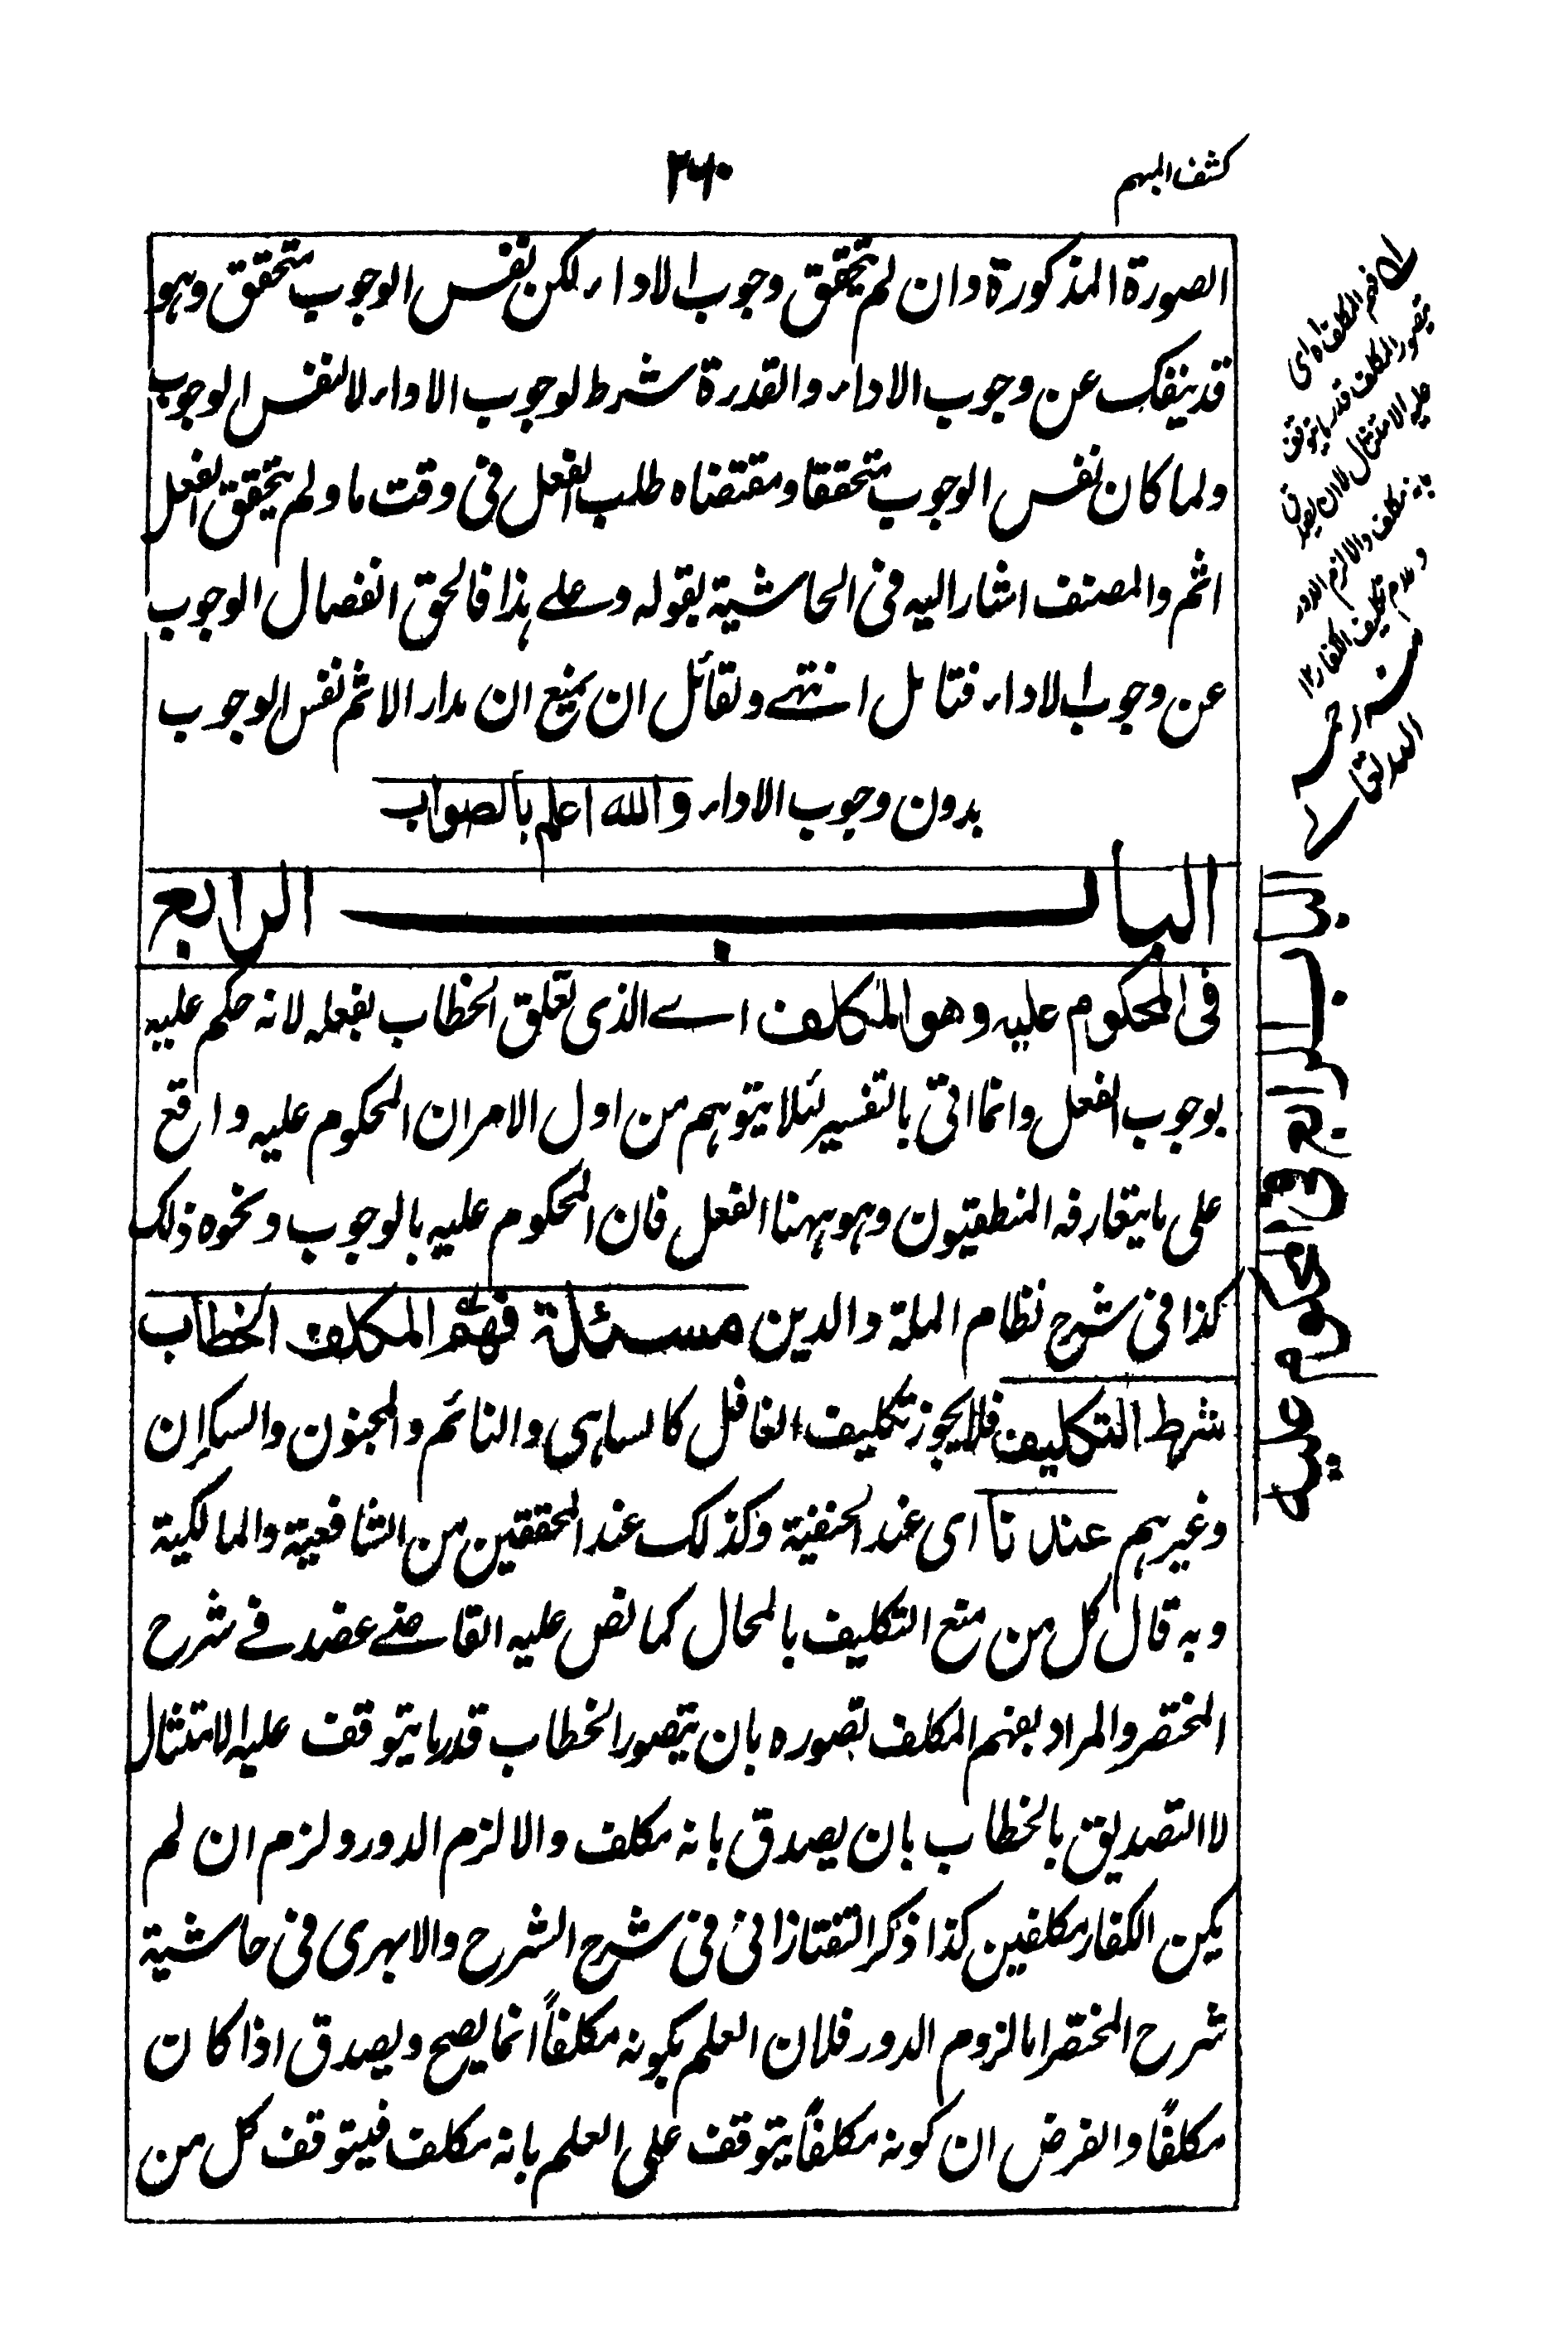 كشف المبهم
۲۶۰
الصورة المذكورة وان لم يتحقق وجوب الاداء لكن نفس الوجوب متحقق وهو
قد ينفك عن وجوب الاداء والقدرة شرط لوجوب الاداء لا لنفس الوجوب
ولما كان نفس الوجوب متحققا ومقتضاه طلب الفعل فى وقت ما ولم يتحقق الفعل
اثم والمصنف اشار اليه فى الحاشية بقوله وعلے هذا فالحق انفصال الوجوب
عن وجوب الاداء فتامل انتهے ولقائل ان يمنع ان مدار الاثم نفس الوجوب
بدون وجوب الاداء والله اعلم بالصواب
الباب الرابع
فى المحكوم عليه وهو المكلف اے الذى تعلق الخطاب بفعله لانه حكم عليه
بوجوب الفعل وانما اتى بالتفسير لئلا يتوهم من اول الامر ان المحكوم عليه واقع
على ما يتعارفه المنطقيون وهو ههنا الفعل فان المحكوم عليه بالوجوب ونحوه ذلك
كذا فى شرح نظام الملة والدين مسئلة فهم المكلف الخطاب
شرط التكليف فلا يجوز تكليف الغافل كالساهى والنائم والمجنون والسكران
وغيرهم عندنا اى عند الحنفية وكذلك عند المحققين من الشافعية والمالكية
وبه قال كل من منع التكليف بالمحال كما نص عليه القاضے عضد فے شرح
المختصر والمراد بفهم المكلف تصوره بان يتصور الخطاب قدر ما يتوقف عليه الامتثال
لا التصديق بالخطاب بان يصدق بانه مكلف والا لزم الدور ولزم ان لم
يكن الكفار مكلفين كذا ذكر التفتازانى فى شرح الشرح والابهرى فى حاشية
شرح المختصر اما لزوم الدور فلان العلم بكونه مكلفاً انما يصح ويصدق اذا كان
مكلفًا والفرض ان كونه مكلفًا يتوقف على العلم بانه مكلف فيتوقف كل من
فهم المكلف اه اى
يتصور المكلف قدر ما يتوقف
عليه الامتثال لا ان يصدق
بانه مكلف والا لزم الدور
وعدم تكليف الكفار ۱۲
منه رحمه
الله تعالے
الباب الرابع فى المحكوم عليه